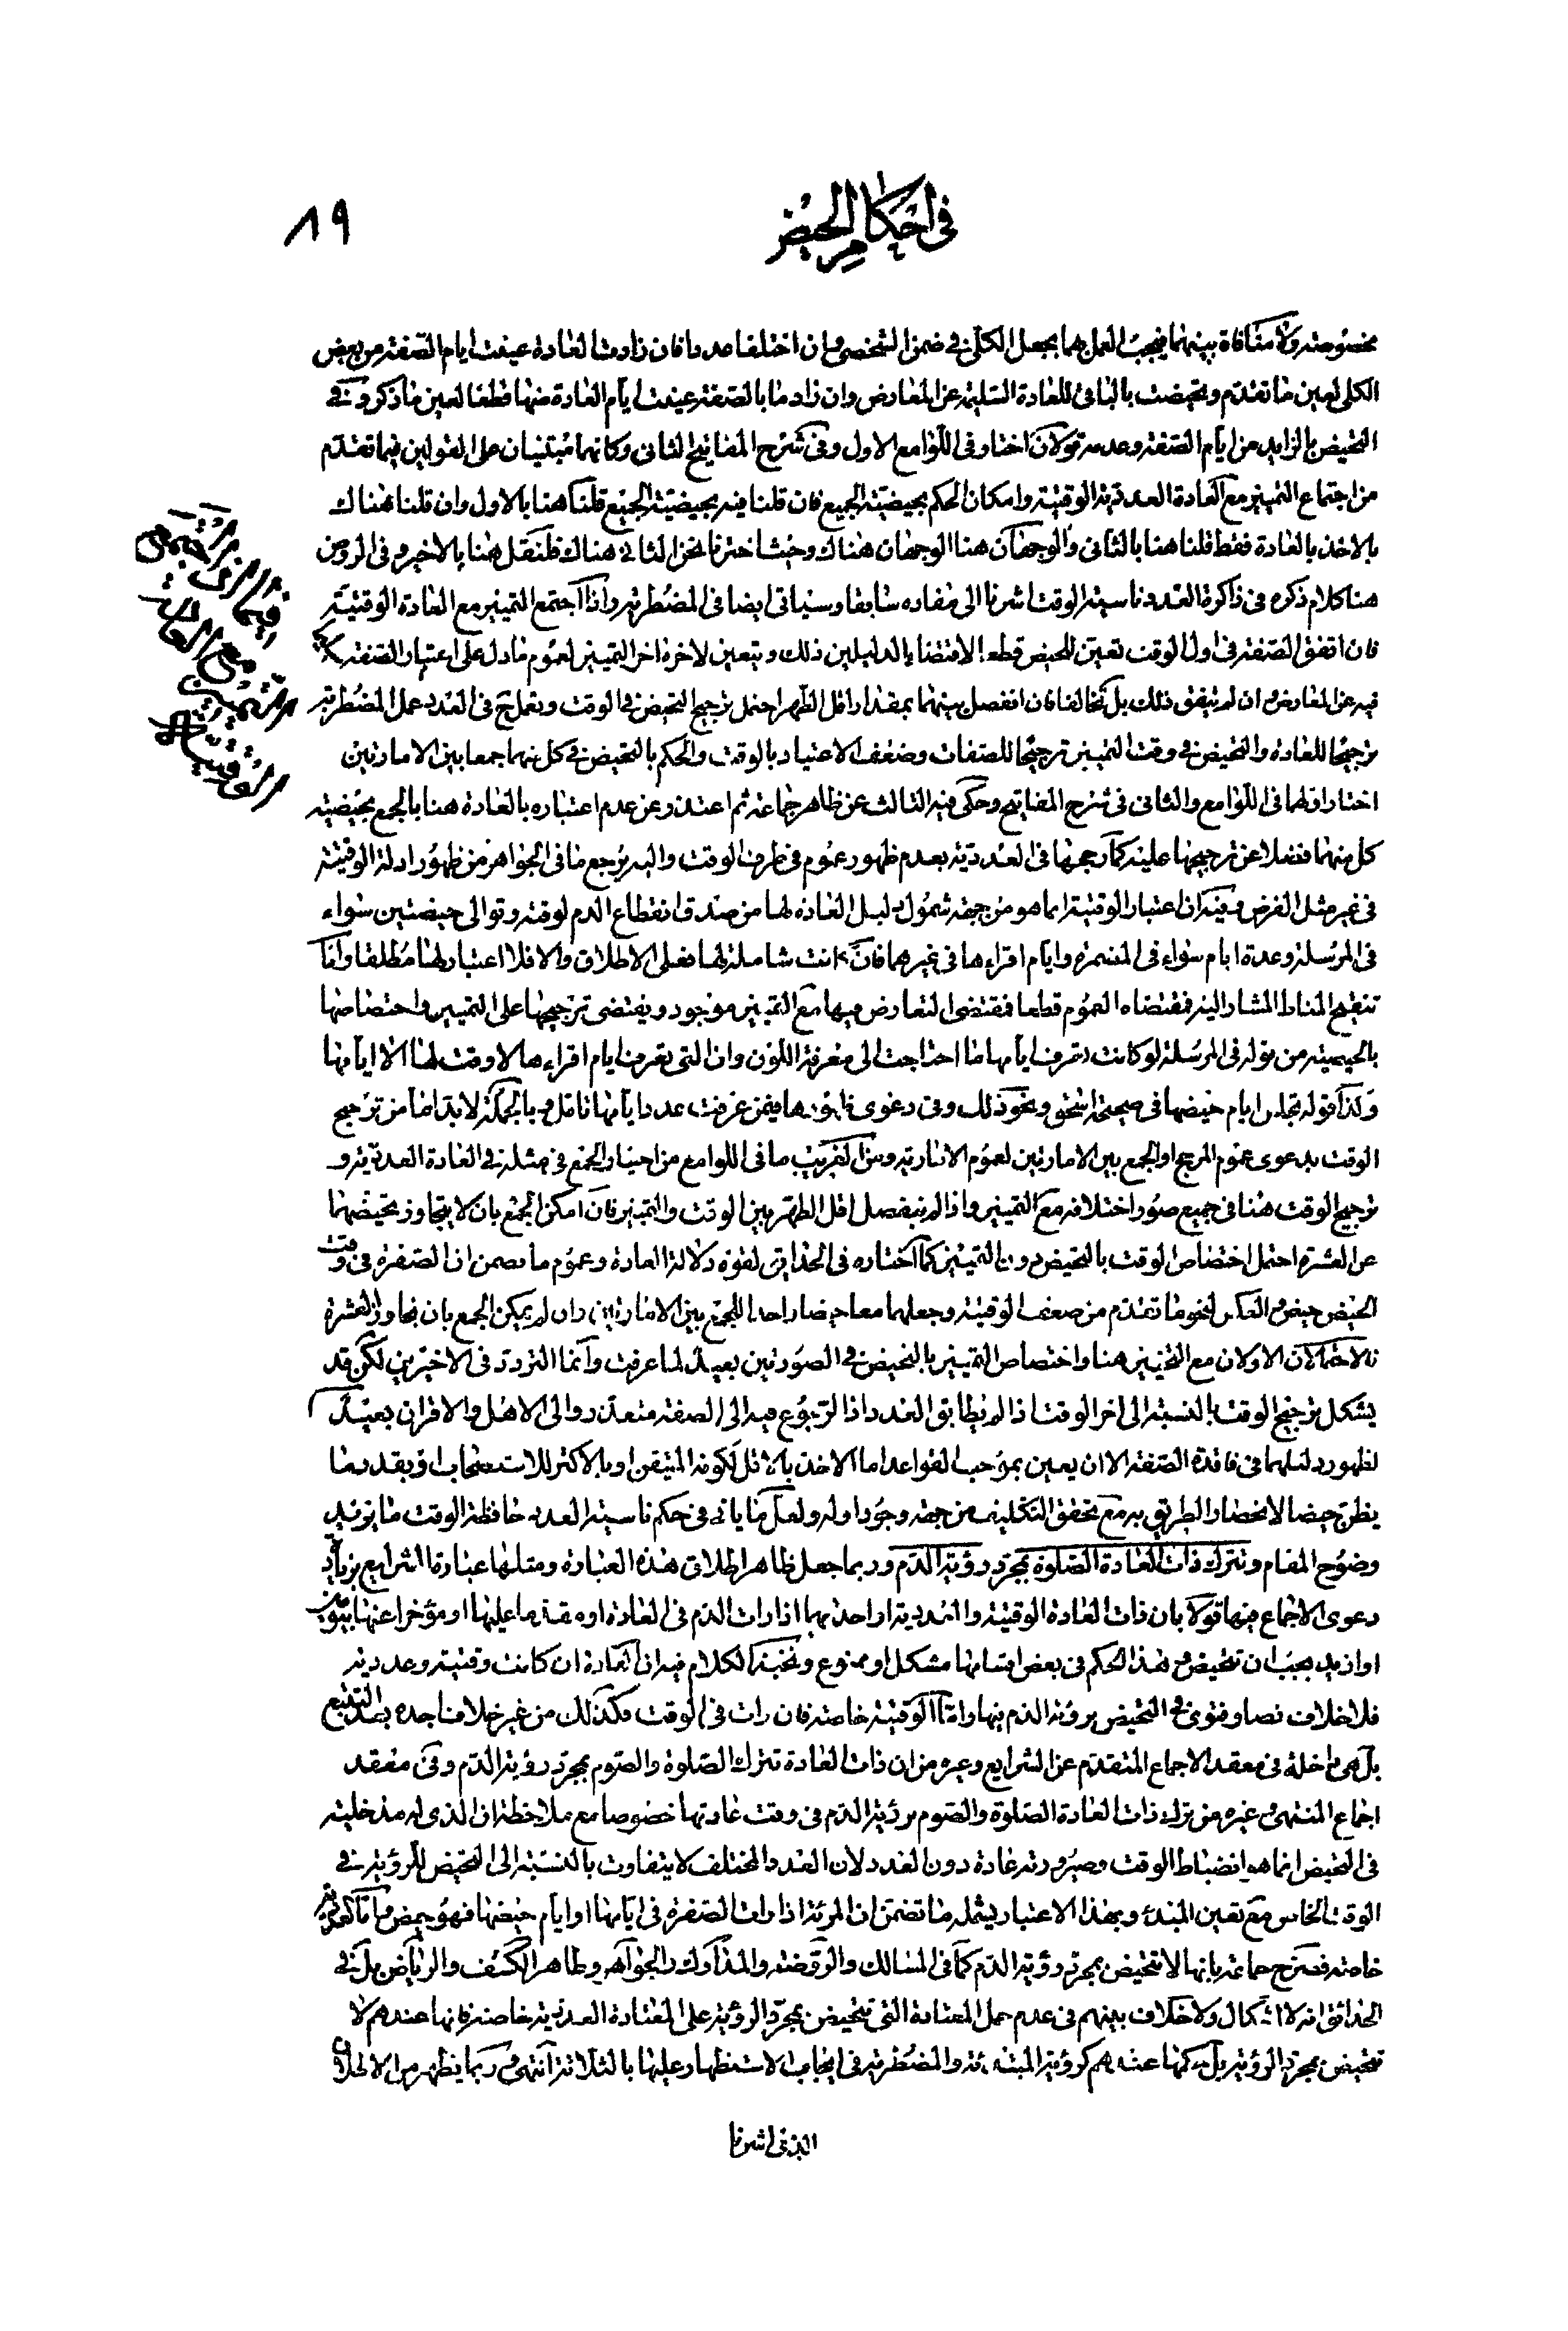 في احكام الحيض
٨٩
مخصوصة ولا منافاة بينهما فيجب العمل بهما بجعل الكلى في ضمن الشخصى وإن اختلفا عددا فان زادت العادة عينت ايام الصفة من بعض
الكلى لعين ما تقدم وتحيضت بالباقي للعادة السليمة عن المعارض وان زاد ما بالصفة عينت ايام العادة منها قطعا لعين ما ذكر وفي
التحيض بالزايد عن ايام الصفة وعدمه قولان اختار في اللوامع الاول وفي شرح المفاتيح الثاني وكانهما مبتنيان على القولين فيما تقدم
من اجتماع التميز مع العادة العددية الوقتية وامكان الحكم بحيضية الجميع فان قلنا فيه بحيضية الجميع قلنا هنا بالاول وان قلنا هناك
بالاخذ بالعادة فقط قلنا هنا بالثاني والوجهان هنا الوجهان هناك وحيث اخترنا نحن الثاني هناك فلنقل هنا بالاخير وفي الروض
هنا كلام ذكره في ذاكرة العدد ناسية الوقت اشرنا الى مفاده سابقا وسياتي ايضا في المضطربة واذا اجتمع التميز مع العادة الوقتية
فان اتفق الصفة في اول الوقت تعين للحيض قطعا لاقتضاء الدليلين ذلك ويتعين لاخره اخر التميز لعموم ما دل على اعتبار الصفة
فيه عن المعارض وان لم يتفق ذلك بل تخالفا فان انفصل بينهما بمقدار اقل الطهر احتمل ترجيح التحيض في الوقت وتعمل ح في العدد عمل المضطربة
ترجيحا للعادة والتحيض في وقت التميز ترجيحا للصفات وضعف الاعتياد بالوقت والحكم بالتحيض في كل منهما جمعا بين الامارتين
اختار اولهما في اللوامع والثاني في شرح المفاتيح وحكى فيه الثالث عن ظاهر جماعة ثم اعتذر عن عدم اعتباره بالعادة هنا بالجمع بحيضية
كل منهما فضلا عن ترجيحها عليه كما رجحها في العددية بعدم ظهور عموم في طرف الوقت واليه يرجع ما في الجواهر من ظهور ادلة الوقتية
في غير مثل الفرض وفيه ان اعتبار الوقتية انما هو من جهة شمول دليل العادة لها من صدق انقطاع الدم لوقته وتوالى حيضتين سواء
في المرسلة وعدة ايام سواء في المضمرة وايام اقراءها في غيرهما فان كانت شاملة لها فعلى الاطلاق والا فلا اعتبار لها مطلقا واما
تنقيح المناط المشار اليه فمقتضاه العموم قطعا فمقتضى التعارض فيها مع التميز موجود ويقتضى ترجيحها على التميز واختصاصها
بالحيضية من قوله في المرسلة لو كانت تعرف ايامها ما احتاجت الى معرفة اللون وان التي تعرف ايام اقراءها لا وقت لها الا ايامها
وكذا قوله تجلس ايام حيضها في صحيحة اسحق ونحو ذلك وفي دعوى ظهورها فيمن عرفت عدد ايامها تامل وبالجملة لابد اما من ترجيح
الوقت بدعوى عموم المرجح او الجمع بين الامارتين لعموم الامارية ومن الغريب ما في اللوامع من اختيار الجمع في مثله في العادة العددية و
ترجيح الوقت هنا في جميع صور اختلافه مع التميز واذا لم ينفصل اقل الطهر بين الوقت والتميز فان امكن الجمع بان لا يتجاوز تحيضهما
عن العشرة احتمل اختصاص الوقت بالتحيض دون التميز كما اختاره في الحدائق لقوة دلالة العادة وعموم ما تضمن ان الصفرة في وقت
الحيض حيض والعكس لنحو ما تقدم من ضعف الوقتية وجعلهما معا حيضا واحدا للجمع بين الامارتين وان لم يمكن الجمع بان تجاوز العشرة
فالاحتمالان الاولان مع التخيير هنا واختصاص التميز بالتحيض في الصورتين بعيد لما عرفت وانما التردد في الاخيرين لكن قد
يشكل ترجيح الوقت بالنسبة الى اخر الوقت اذا لم يطابق العدد اذ الرجوع فيه الى الصفة متعذر والى الاهل والاقران بعيد
لظهور دليلهما في فاقدة الصفة الا ان يعين بموجب القواعد اما الاخذ بالاقل لكونه المتيقن او بالاكثر للاستصحاب او بقدر ما
يطرح حيضا لانحصار الطريق به مع تحقق التكليف من جهة وجود اوله ولعل ما ياتي في حكم ناسية العدد حافظة الوقت ما يؤيد
وضوح المقام وتترك ذات العادة الصلوة بمجرد رؤية الدم وربما جعل ظاهر اطلاق هذه العبارة ومثلها عبارة الشرايع بزيادة
دعوى الاجماع فيها قولا بان ذات العادة الوقتية والعددية او احدهما اذا رات الدم في العادة او مقدما عليها او مؤخرا عنها بيومين
او ازيد يجب ان تتحيض وهذا الحكم في بعض اقسامها مشكل او ممنوع ونخبة الكلام فيه ان العادة ان كانت وقتية وعددية
فلا خلاف نصا وفتوى في التحيض برؤية الدم فيها واما الوقتية خاصة فان رات في الوقت فكذلك من غير خلاف اجده بعد التتبع
بل هى داخلة في معقد الاجماع المتقدم عن الشرايع وغيره من ان ذات العادة تترك الصلوة والصوم بمجرد رؤية الدم وفي معقد
اجماع المنتهى وغيره من ترك ذات العادة الصلوة والصوم برؤية الدم في وقت عادتها خصوصا مع ملاحظة ان الذي له مدخلية
في التحيض انما هو انضباط الوقت وصيرورته عادة دون العدد لان العدد المختلف لا يتفاوت بالنسبة الى التحيض للرؤية في
الوقت الخاص مع تعين المبدء وبهذا الاعتبار يشمله ما تضمن ان المرئة اذا رات الصفرة في ايامها او ايام حيضها فهو حيض واما العددية
خاصة فصرح جماعة بانها لا تتحيض بمجرد رؤية الدم كما في المسالك والروضة والمدارك والجواهر وظاهر الكشف والرياض بل في
الحدائق انه لا اشكال ولا خلاف بينهم في عدم حمل المعتادة التي تتحيض بمجرد الرؤية على المعتادة العددية خاصة فانها عندهم لا
تتحيض بمجرد الرؤية بل حكمها عندهم كرؤية المبتدئة والمضطربة في ايجاب الاستظهار عليها بالثلاثة انتهى وربما يظهر من الاطلاق
الذي اشرنا
فيما اذا اجتمع
مع العادة
التميز
الوقتية